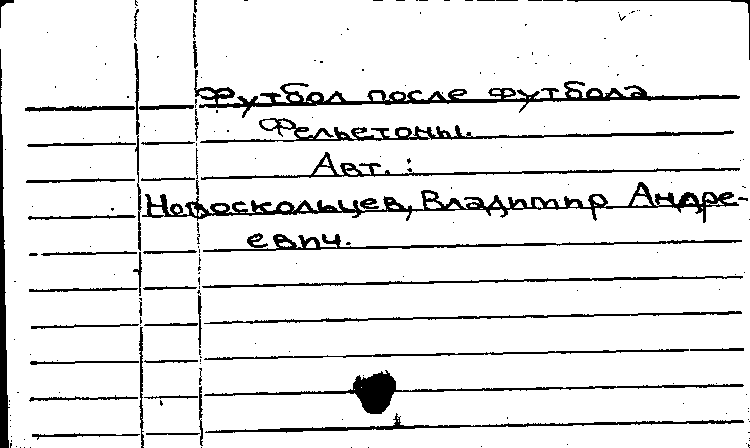 Футбол после футбола
Фельетоны.
Авт.:
Новоскольцев, Владимир Андре-
евич.